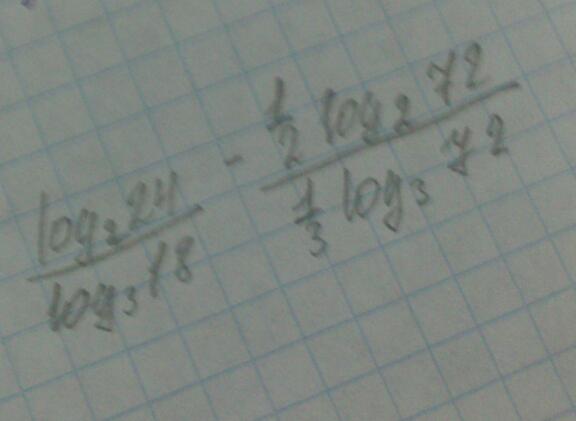 log₂24 / log₃18 - 1/2 log₂ 72 / 1/3 log₃ 72